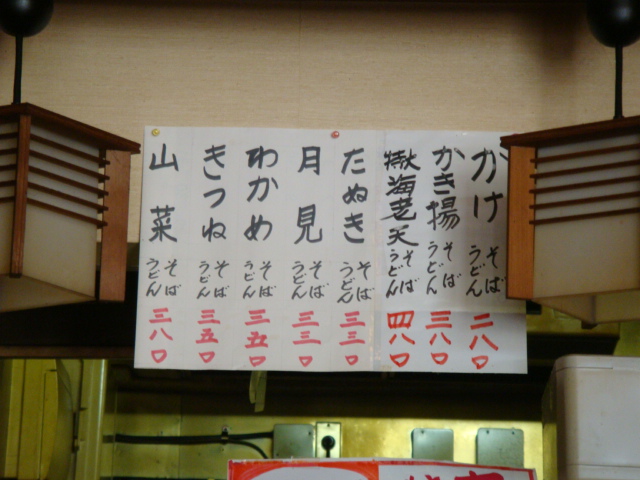 かけ そば うどん 二八〇
かき揚 そば うどん 三八〇
海老天 そば うどん 四八〇
たぬき そば うどん 三三〇
月見 そば うどん 三三〇
わかめ そば うどん 三五〇
きつね そば うどん 三五〇
山菜 そば うどん 三八〇